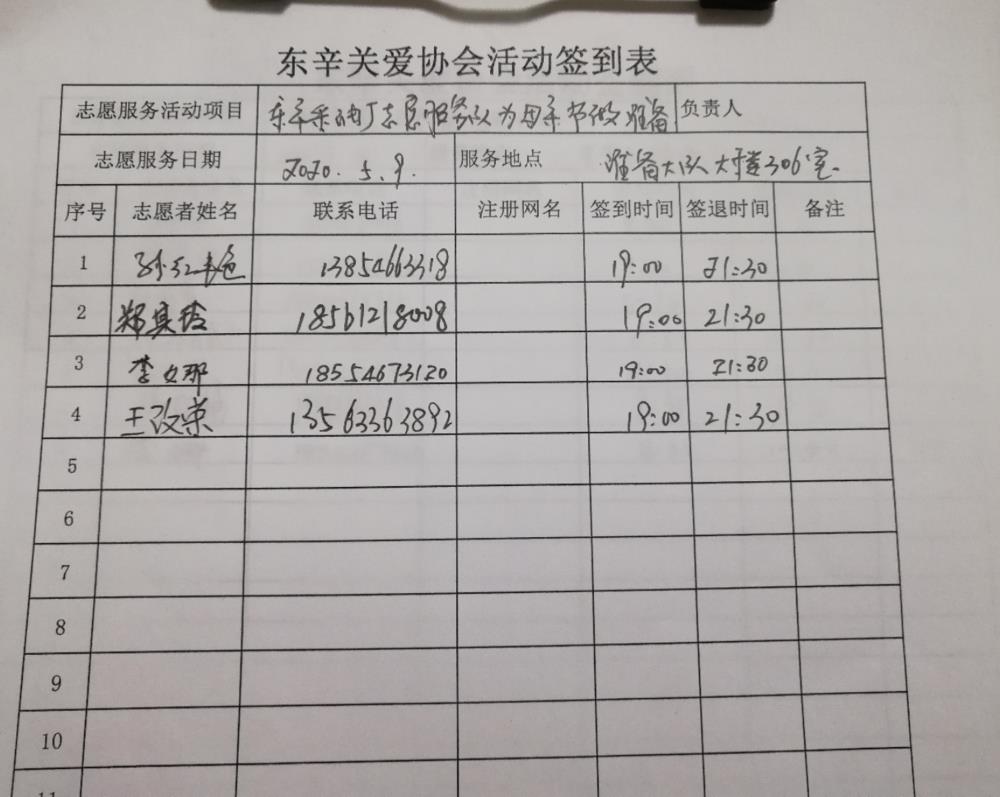 东辛关爱协会活动签到表
志愿服务活动项目 东辛采油厂志愿服务队为母亲节做准备 负责人
志愿服务日期 2020.5.9. 服务地点 准备大队大楼306室.
序号 志愿者姓名 联系电话 注册网名 签到时间 签退时间 备注
1 孙红艳 13854663318 19:00 21:30
2 郑真玲 18561218008 19:00 21:30
3 李文那 18554673120 19:00 21:30
4 王改荣 13563363892 19:00 21:30
5
6
7
8
9
10
11